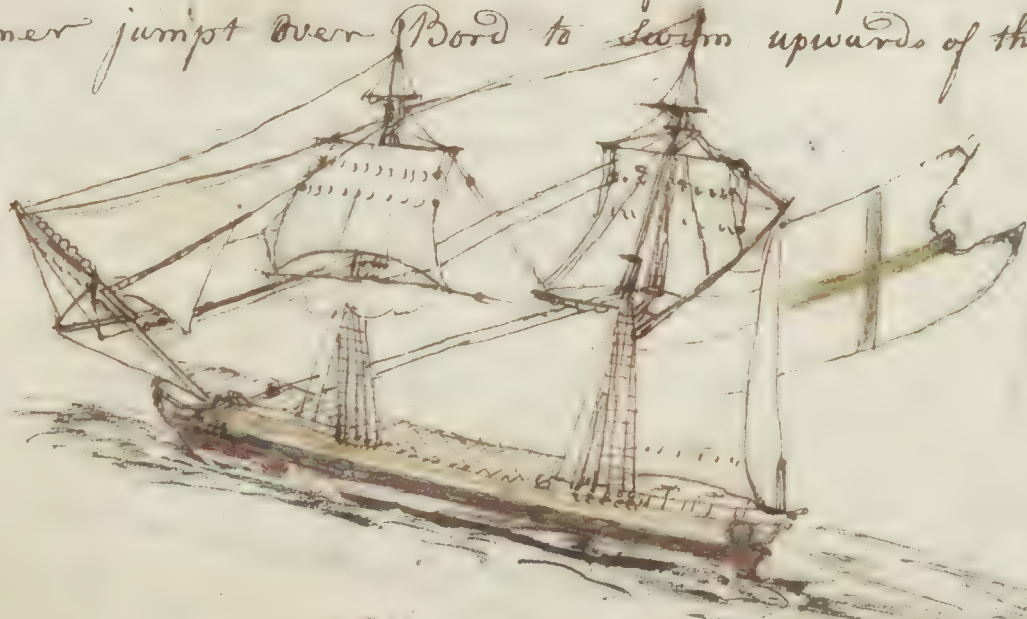 jumpt over Bord to Swim upwards of